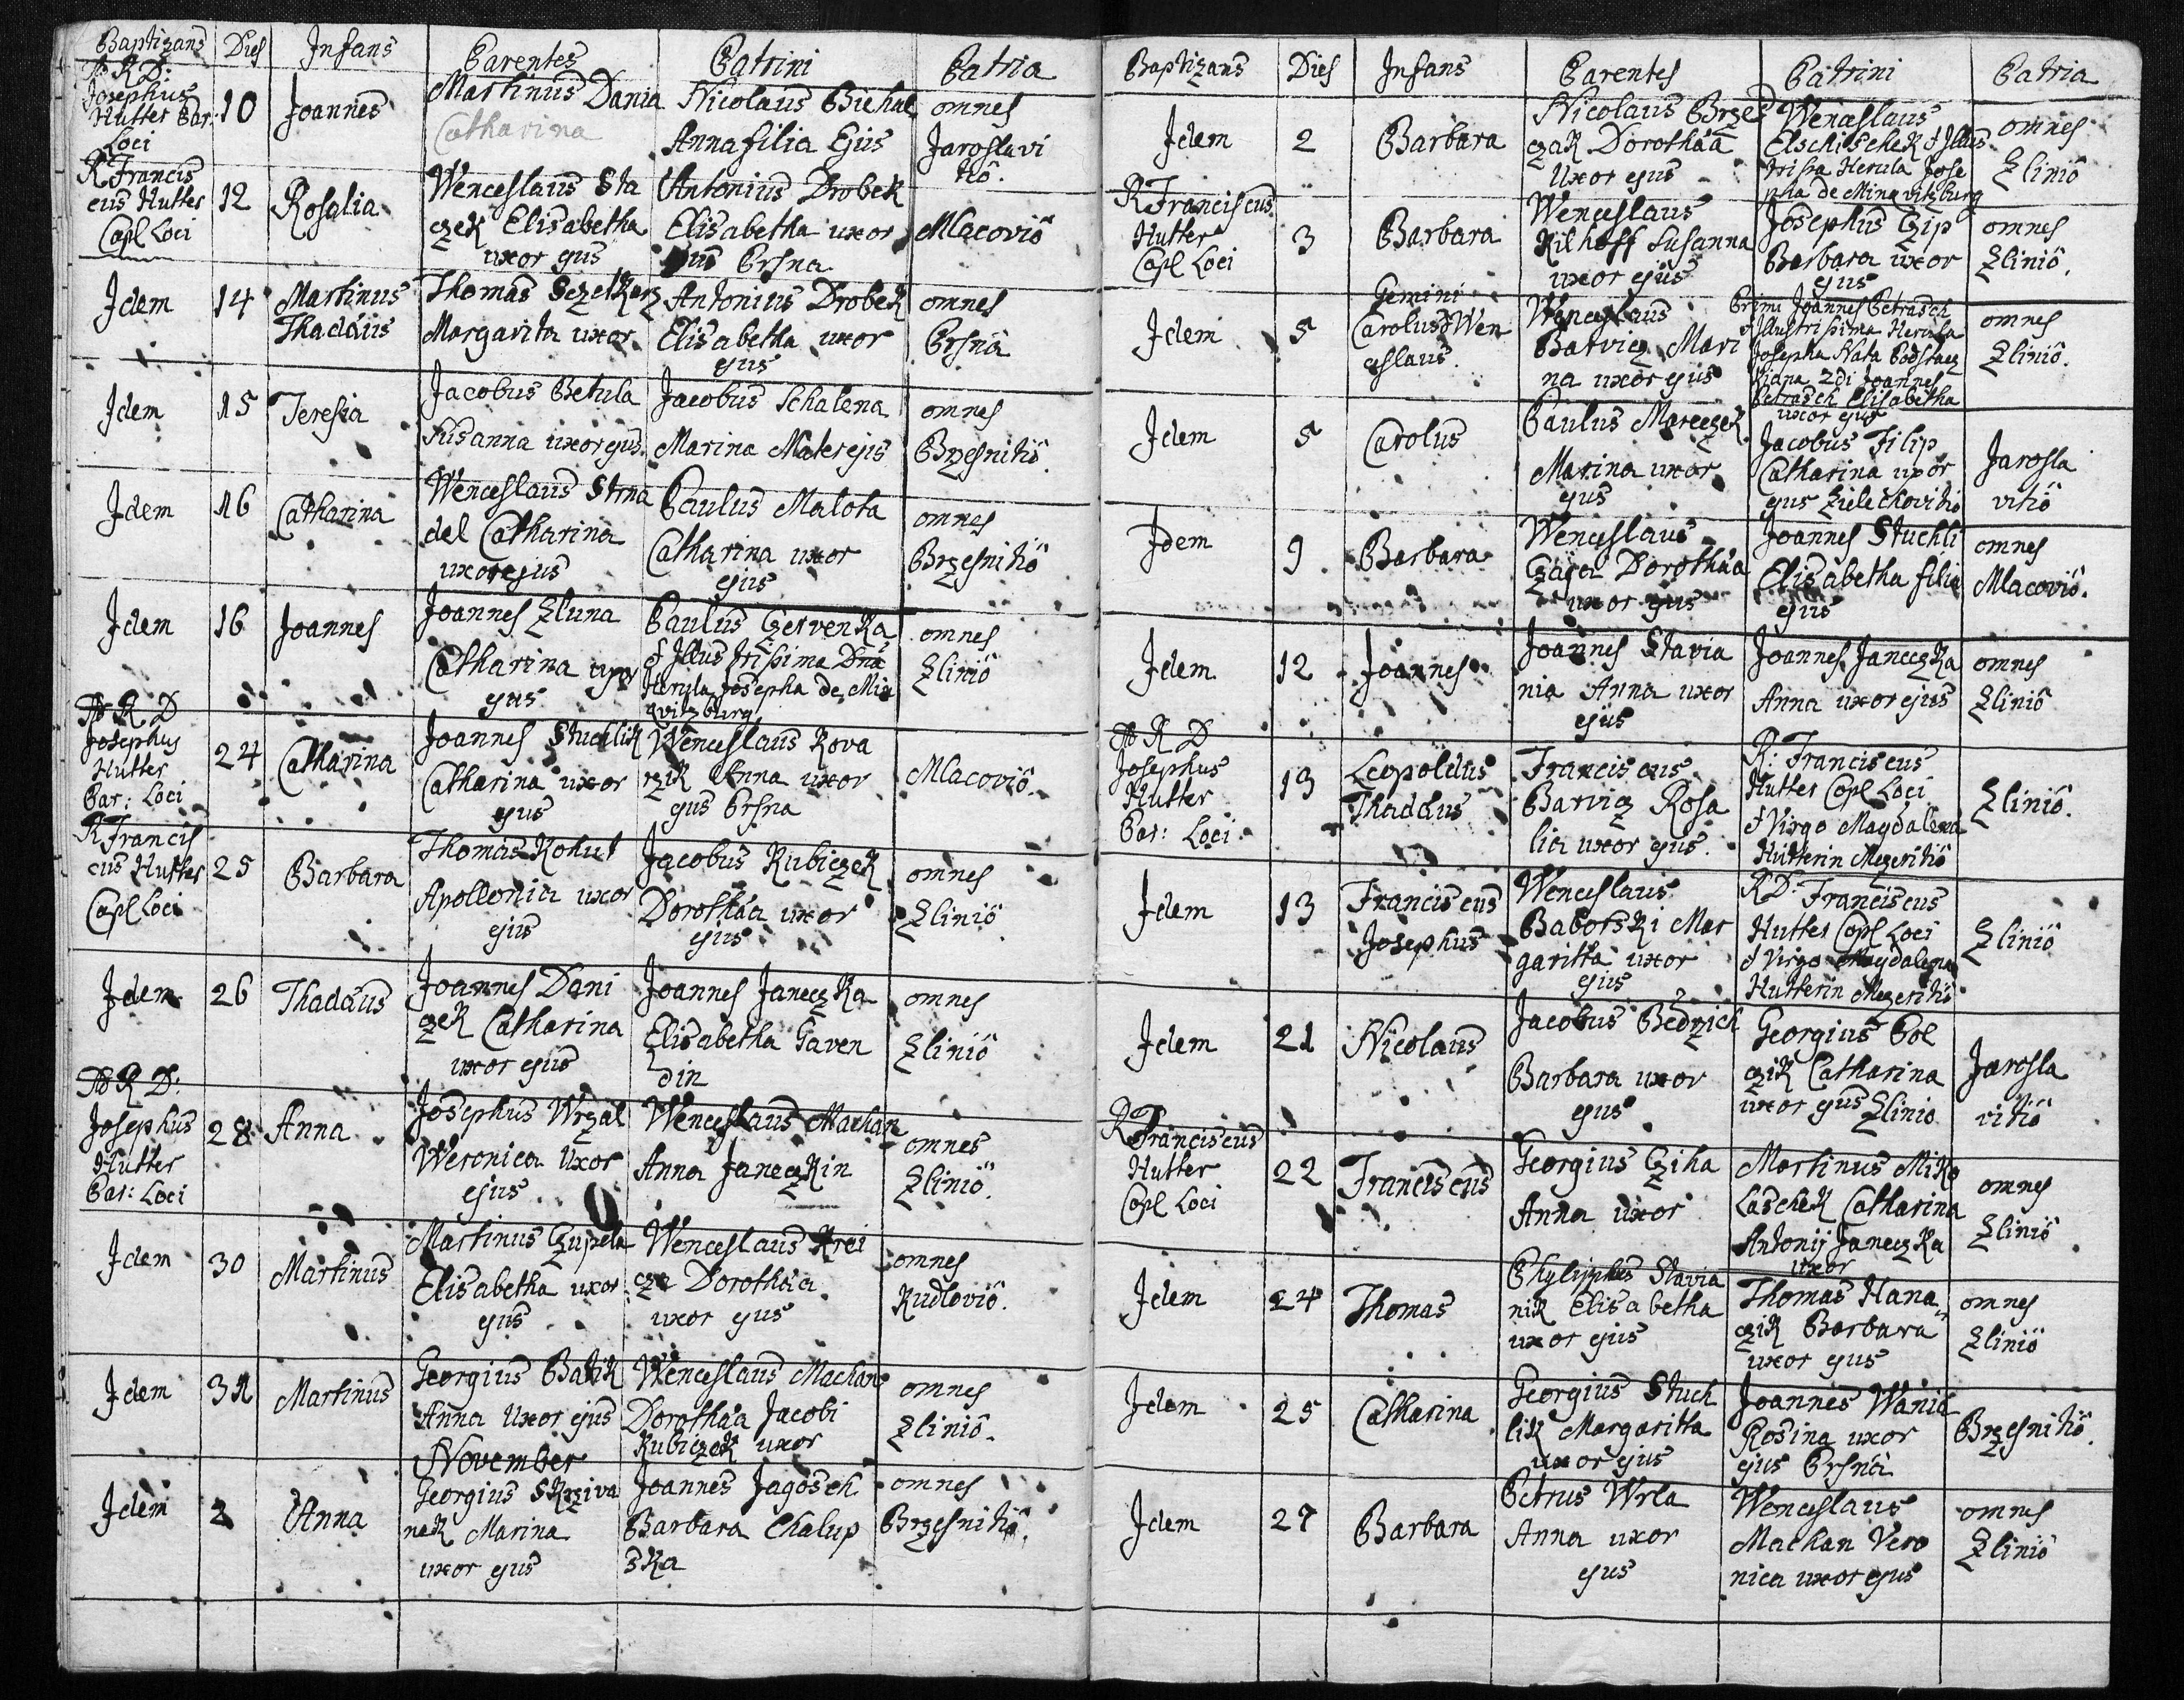 Baptizans Dies Infans Parentes Patrini Patria
A R D:
Josephus
Hutter Par:
Loci
10
Joannes
Martinus Dania
Catharina
Nicolaus
Anna filia Ejus
omnes
Jaroslavi
tio.
R Francis
cus Hutter
Copl Loci
12
Rosalia
Wenceslaus Sta
czek Elisabetha
uxor ejus
Antonius Drobek
Elisabetha uxor
ejus Prsna
Mlacovio
Idem
14
Martinus
Thadäus
Thomas
Margarita uxor
Antonius Drobek
Elisabetha uxor
ejus
omnes
Prsna
Idem
15
Teresia
Jacobus Betula
Susanna uxor ejus
Jacobus Schalena
Marina Mater ejs
omnes
Brzesnitio
Idem
16
Catharina
Wenceslaus Strna
del Catharina
uxor ejus
Paulus Malota
Catharina uxor
ejus
omnes
Brzesnitio
Idem
16
Joannes
Joannes Zluna
Catharina uxor
ejus
Paulus Czervenka
& Illustrissima Dna
Herula Josepha de Min
qvitzburg
omnes
Zlinio
A R D
Josephus
Hutter
Par: Loci
24
Catharina
Joannes Stuchlik
Catharina uxor
ejus
Wenceslaus Kova
rzik Anna uxor
ejus Prsna
Mlacovio.
R Francis
cus Hutter
Copl Loci
25
Barbara
Thomas Kohut
Apollonia uxor
ejus
Jacobus Kubiczek
Dorothäa uxor
ejus
omnes
Zlinio
Idem
26
Thadäus
Joannes Dani
czek Catharina
uxor ejus
Joannes Janeczka
Elisabetha Gaven
din
omnes
Zlinio
A R D:
Josephus
Hutter
Par: Loci
28
Anna
Josephus Wrzal
Weronica Uxor
ejus
Wenceslaus Machan
Anna Janeczkin
omnes
Zlinio.
Idem
30
Martinus
Martinus Czupela
Elisabetha uxor
ejus
Wenceslaus Krei
cze Dorothäa
uxor ejus
omnes
Kudlovio.
Idem
31
Martinus
Georgius Batik
Anna Uxor ejus
Wenceslaus Machan
Dorothäa Jacobi
Kubiczek uxor
omnes
Zlinio.
November
Idem
2
Anna
Georgius Skrziva
nek Marina
uxor ejus
Joannes Jagosch
Barbara Chalup
ska
omnes
Brzesnitio.
Baptizans Dies Infans Parentes Patrini Patria
Idem
2
Barbara
Nicolaus Brzes
czak Dorothäa
Uxor ejus
Wenceslaus
Elschischek & Illus
trissa Herula Jose
pha de Minqvitzburg
omnes
Zlinio
R Franciscus
Hutter
Copl Loci
3
Barbara
Wenceslaus
Kilhoff Susanna
uxor ejus
Josephus Czip
Barbara uxor
ejus
omnes
Zlinio.
Idem
5
Gemini
Carolus & Wen
ceslaus
Wenceslaus
Barvicz Mari
na uxor ejus
Primi Joannes Petrasch
& Illustrissima Herula
Josepha Nata Podstacz
kiana 2di Joannes
Petrasch Elisabetha
uxor ejus
omnes
Zlinio.
Idem
5
Carolus
Paulus Mareczek
Marina uxor
ejus
Jacobus Filip
Catharina uxor
ejus Zielechovitio
Jarosla
vitio
Idem
9
Barbara
Wenceslaus
Dorothäa
uxor ejus
Joannes Stuchli
Elisabetha filia
ejus
omnes
Mlacovio.
Idem
12
Joannes
Joannes Stavia
nia Anna uxor
ejus
Joannes Janeczka
Anna uxor ejus
omnes
Zlinio
A R D
Josephus
Hutter
Par: Loci
13
Leopoldus
Thadäus
Franciscus
Barvicz Rosa
lia uxor ejus.
R: Franciscus
Hutter Copl Loci
& Virgo Magdalena
Hutterin Mezeritio
Zlinio.
Idem
13
Franciscus
Josephus
Wenceslaus
Baborski Mar
garitta uxor
ejus
RD: Franciscus
Hutter Copl Loci
& Virgo Magdalena
Hutterin Mezeritio
Zlinio
Idem
21
Nicolaus
Jacobus Bedrzich
Barbara uxor
ejus
Georgius Pol
czik Catharina
uxor ejus Zlinio
Jarosla
vitio
R Franciscus
Hutter
Copl Loci
22
Franciscus
Georgius Cziha
Anna uxor
Martinus Miko
laschek Catharina
Antonij Janeczka
uxor
omnes
Zlinio
Idem
24
Thomas
Phylippus Slavia
nik Elisabetha
uxor ejus
Thomas Hana
czik Barbara
uxor ejus
omnes
Zlinio
Idem
25
Catharina
Georgius Stuch
lik Margaritta
uxor ejus
Joannes Wania
Rosina uxor
ejus Prsna
Brzesnitio.
Idem
27
Barbara
Petrus Wrla
Anna uxor
ejus
Wenceslaus
Machan Vero
nica uxor ejus
omnes
Zlinio